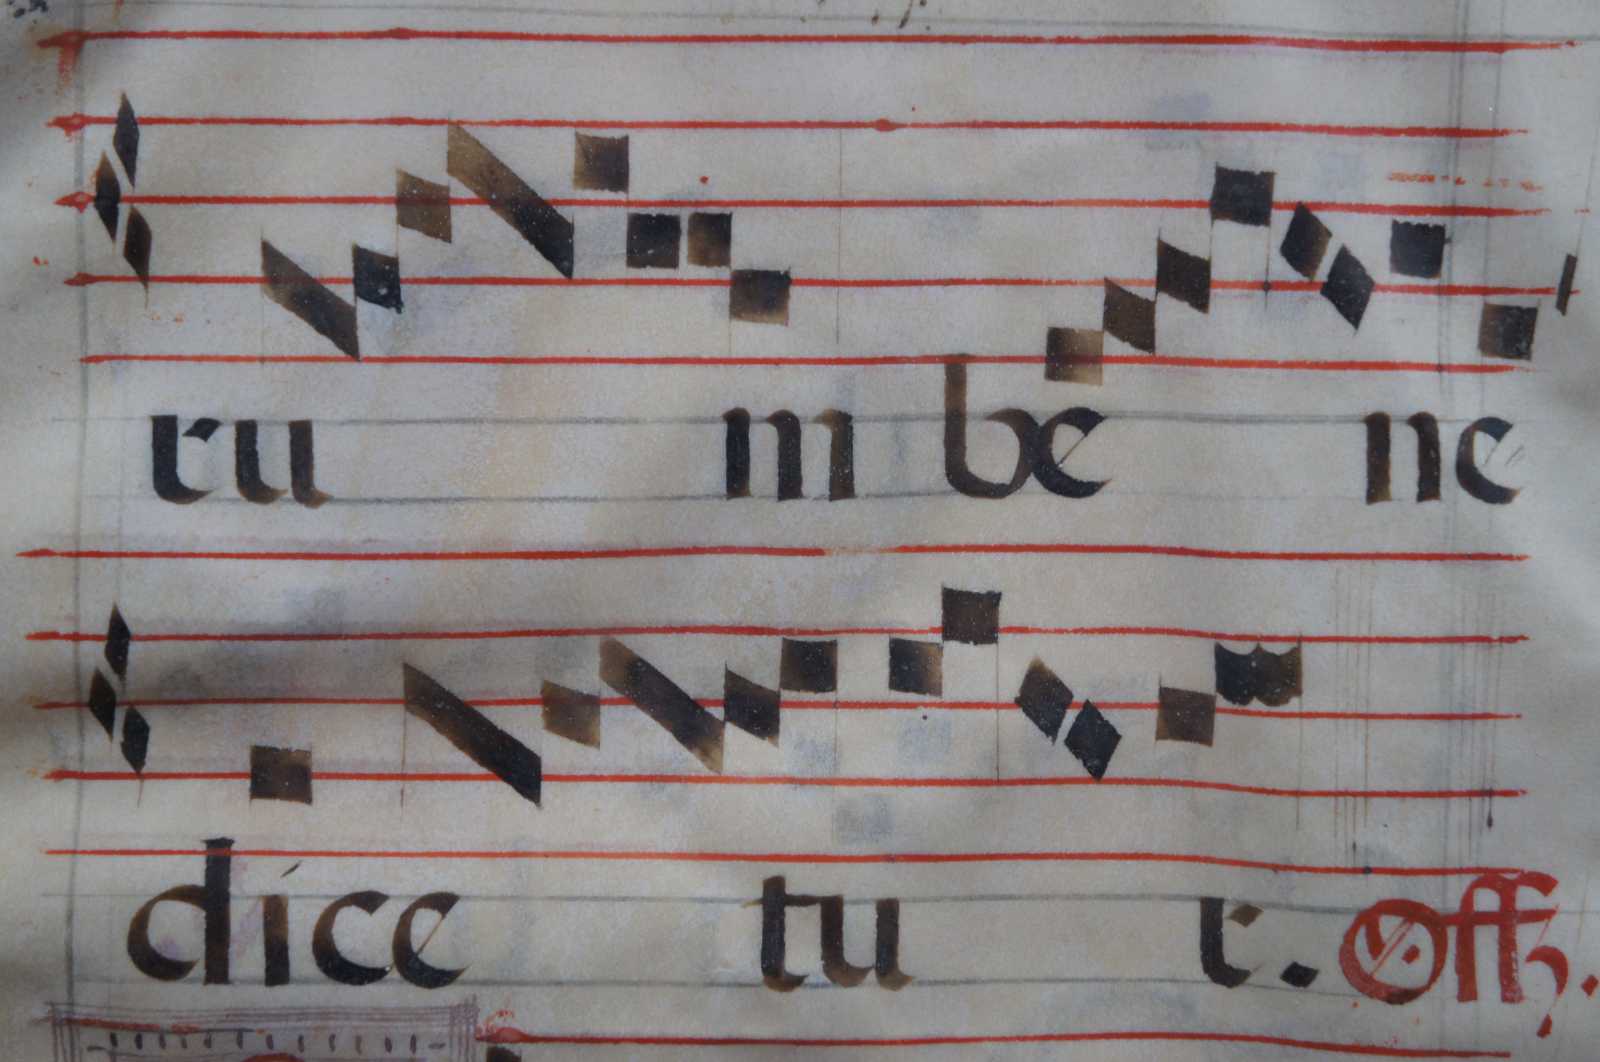 ru m be ne
dice tu r. Off